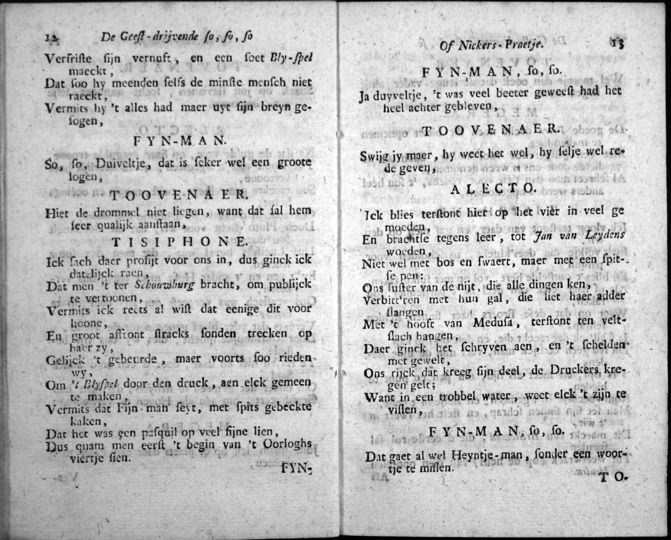 12 De Geest-drijvende so, so, so
Versriste sijn vernuft, en een soet Bly-spel
maeckt,
Dat soo hy meenden selfs de minste mensch niet
raeckt,
Vermits hy 't alles had maer uyt sijn breyn ge-
sogen,
FYN-MAN.
So, so, Duiveltje, dat is seker wel een groote
logen,
TOOVENAER.
Hiet de drommel niet liegen, want dat sal hem
seer qualijk aanstaan,
TISIPHONE.
Ick sach daer profijt voor ons in, dus ginck ick
datelijck raen,
Dat men 't ter Schouwburg bracht, om publijck
te vertoonen,
Vermits ick reets al wist dat eenige dit voor
hoone,
En groot affront stracks souden trecken op
haer zy,
Gelijck 't gebeurde, maer voorts soo rieden
wy,
Om 't Blyspel door den druck, aen elck gemeen
te maken,
Vermits dat Fijn-man seyt, met spits gebeckte
kaken,
Dat het was een pasquil op veel fijne lien,
Dus quam men eerst 't begin van 't Oorloghs
viertje sien.
FYN-
Of Nickers-Praetje. 13
FYN-MAN, so, so.
Ja duyveltje, 't was veel beeter geweest had het
heel achter gebleven,
TOOVENAER.
Swijg jy maer, hy weet het wel, hy selje wel re-
de geven,
ALECTO.
Ick blies terstont hier op het vier in veel ge
moeden,
En brachtse tegens leer, tot Jan van Leydens
woeden,
Niet wel met bos en swaert, maer met een spit-
se pen:
Ons suster van de nijt, die alle dingen ken,
Verbitt'ren met hun gal, die liet haer adder
slangen
Met 't hooft van Medusa, terstont ten velt-
slach hangen,
Daer ginck het schryven aen, en 't schelden
met gewelt,
Ons rijck dat kreeg sijn deel, de Druckers kre-
gen gelt;
Want in een trobbel water, weet elck 't zijn te
vissen,
FYN-MAN, so, so.
Dat gaet al wel Heyntje-man, sonder een woor-
tje te missen.
TO-